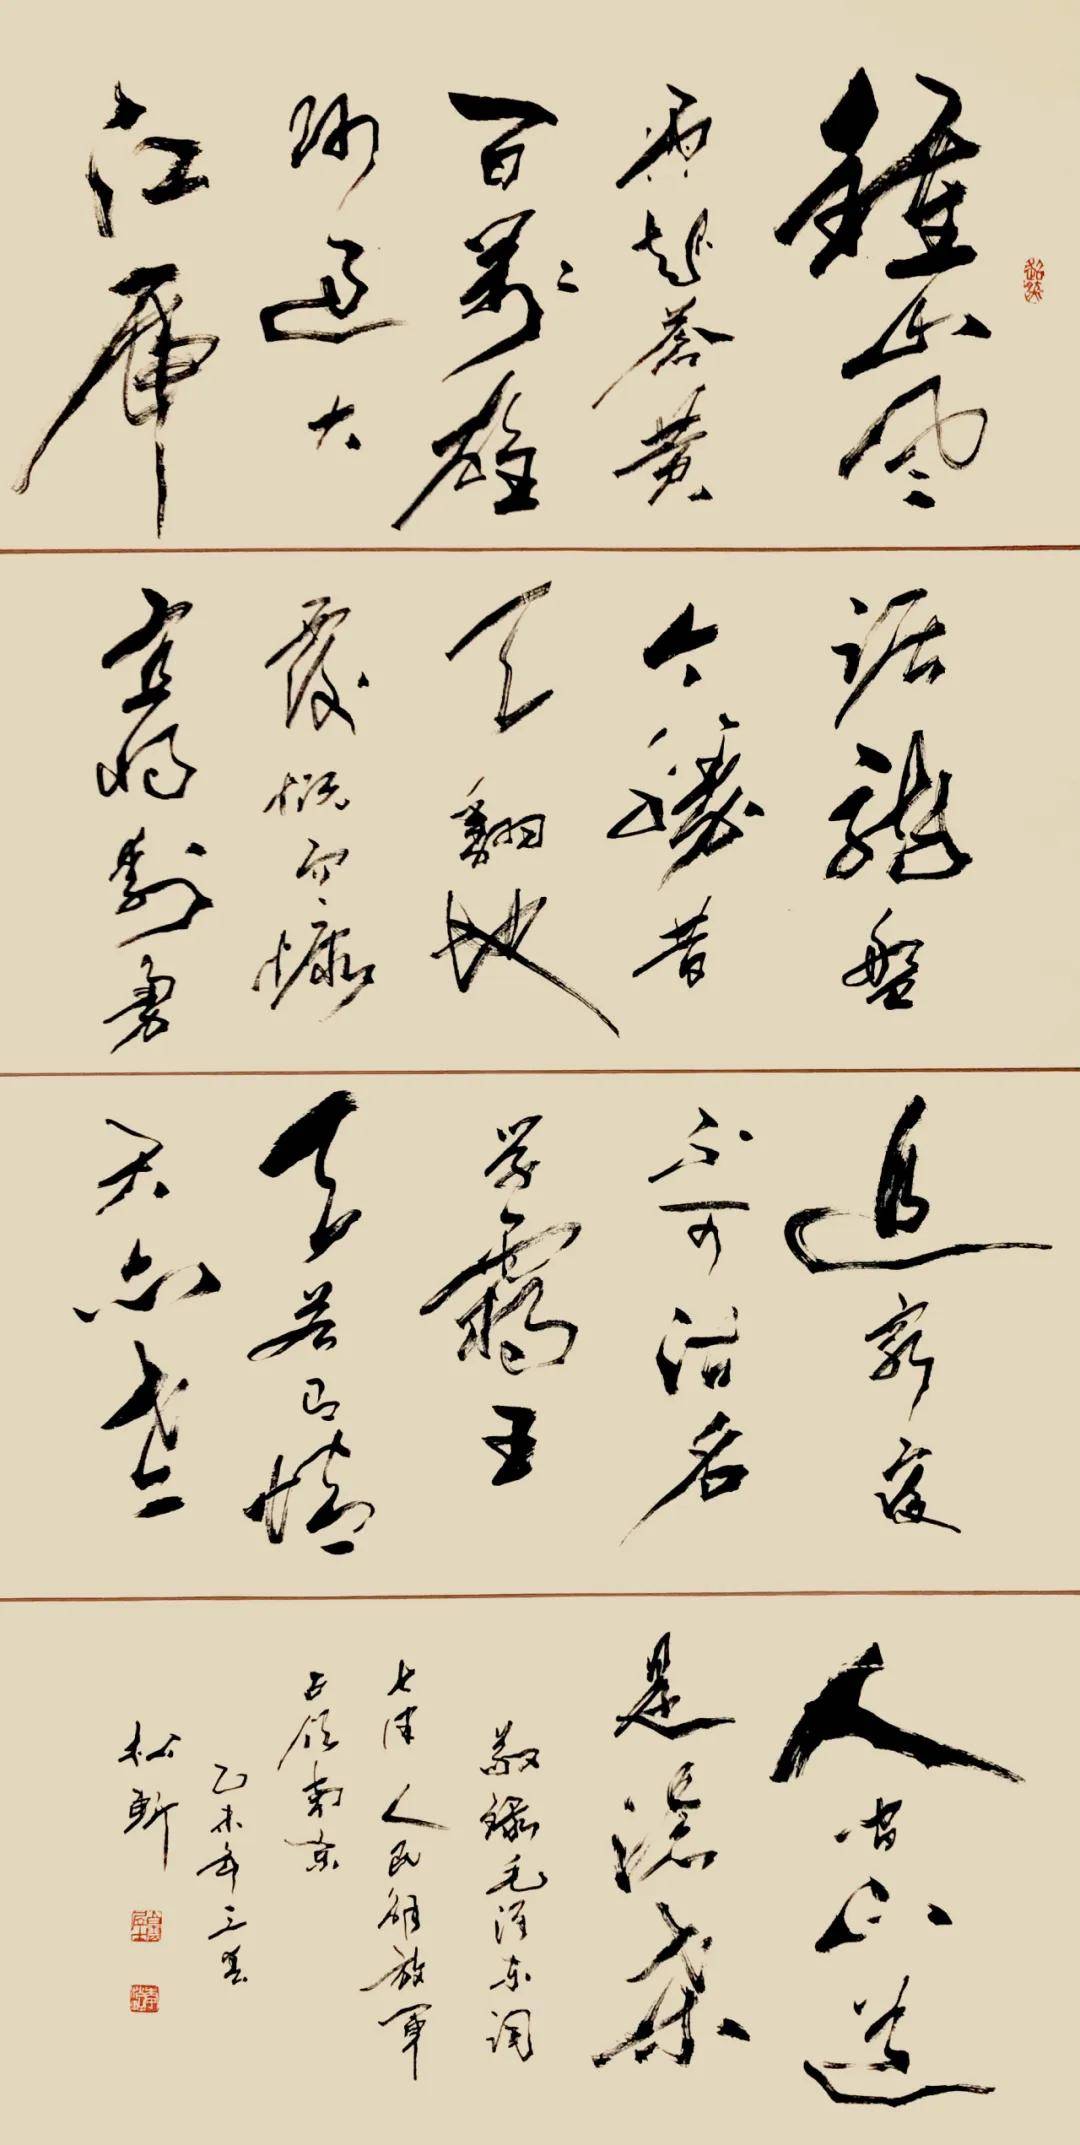 鍾山風
雨起蒼黄
百萬雄
师過大
江虎
踞龍盤
今勝昔
天翻地
覆慨而慷
宜将剩勇
追窮寇
不可沽名
学霸王
天若有情
天亦老
人间正道
是滄桑
敬録毛泽东词
七律 人民解放军
占领南京
乙未年三春
松